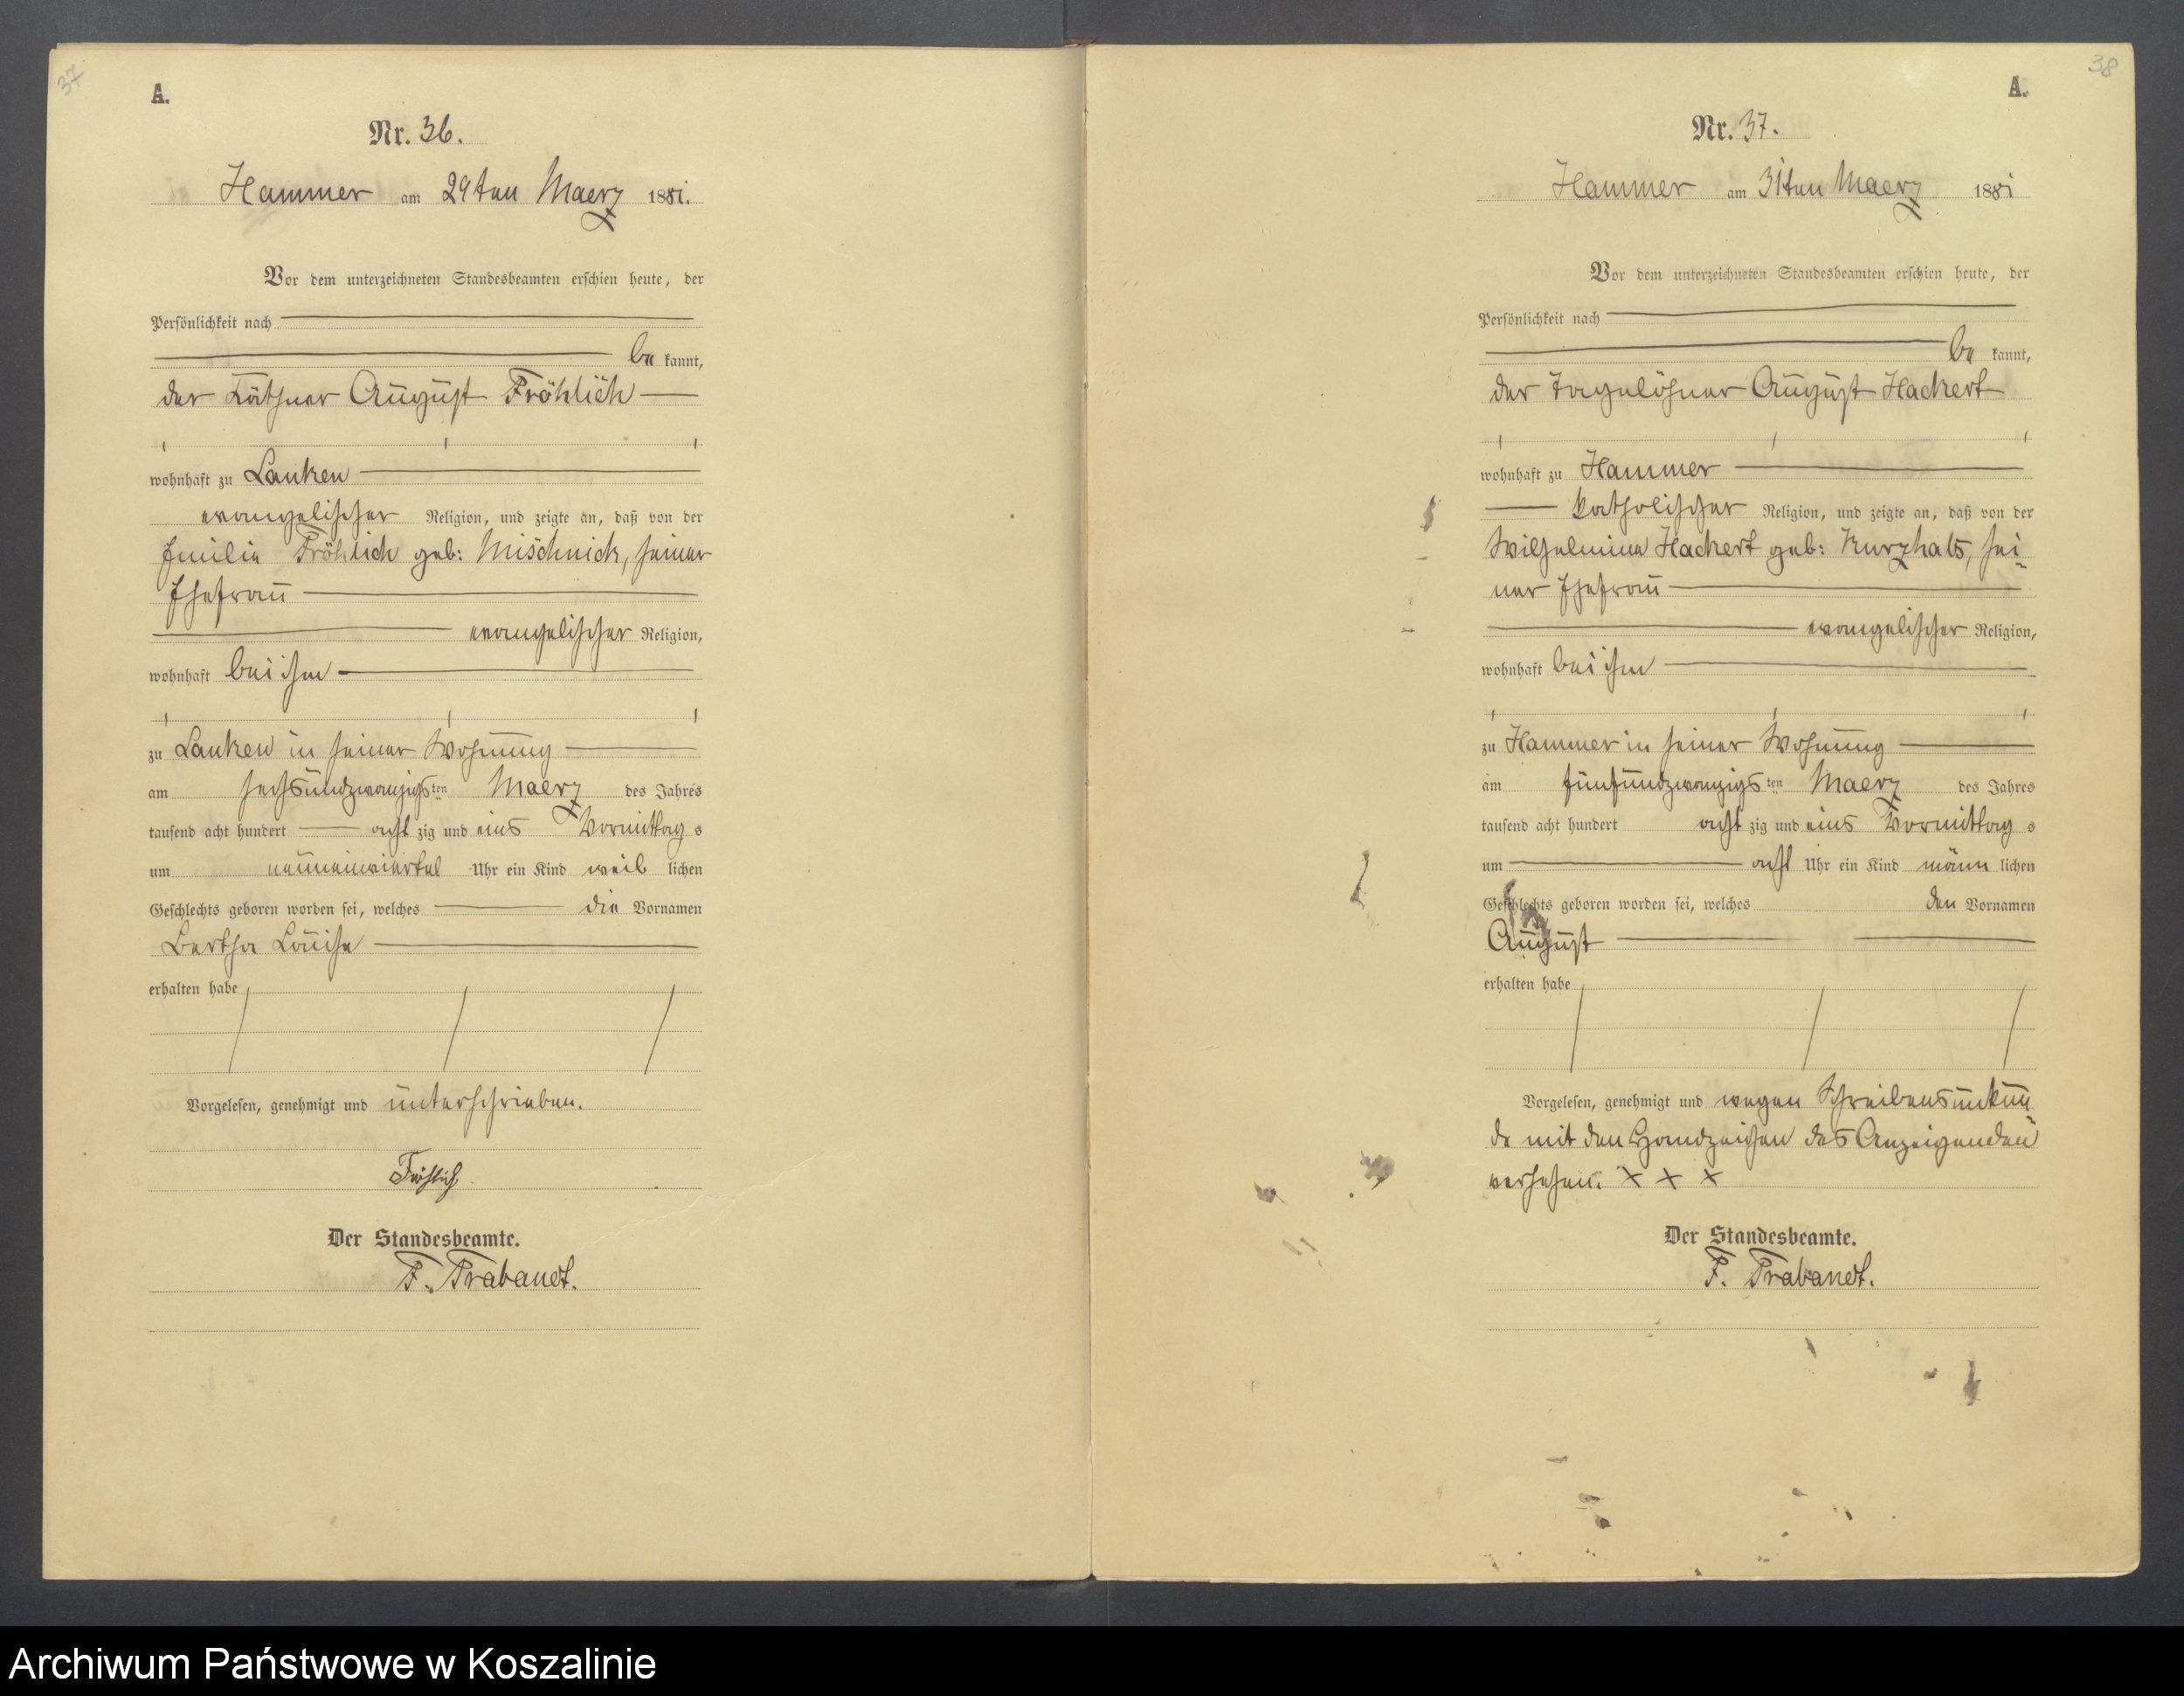 37
A.
Nr. 36.
Hammer am 29ten Maerz 1881.
Vor dem unterzeichneten Standesbeamten erschien heute, der
Persönlichkeit nach
be kannt,
der Käthner August Fröhlich
wohnhaft zu Lanken
evangelischer Religion, und zeigte an, daß von der
Emilie Fröhlich geb: Mischnick, seiner
Ehefrau
evangelischer Religion,
wohnhaft bei ihm
zu Lanken in seiner Wohnung
am sechsundzwanzigsten Maerz des Jahres
tausend acht hundert acht zig und eins Vormittag s
um neuneinviertel Uhr ein Kind weib lichen
Geschlechts geboren worden sei, welches die Vornamen
Bertha Louise
erhalten habe
Vorgelesen, genehmigt und unterschrieben.
Fröhlich
Der Standesbeamte.
F. Trabandt.
38
A.
Nr. 37.
Hammer am 31ten Maerz 1881
Vor dem unterzeichneten Standesbeamten erschien heute, der
Persönlichkeit nach
be kannt,
der Tagelöhner August Hackert
wohnhaft zu Hammer
katholischer Religion, und zeigte an, daß von der
Wilhelmine Hackert geb: Kurzhals, sei-
ner Ehefrau
evangelischer Religion,
wohnhaft bei ihm
zu Hammer in seiner Wohnung
am fünfundzwanzigsten Maerz des Jahres
tausend acht hundert acht zig und eins Vormittag s
um acht Uhr ein Kind männ lichen
Geschlechts geboren worden sei, welches den Vornamen
August
erhalten habe
Vorgelesen, genehmigt und wegen Schreibensunkun-
de mit den Handzeichen des Anzeigenden
versehen. × × ×
Der Standesbeamte.
F. Trabandt.
Archiwum Państwowe w Koszalinie